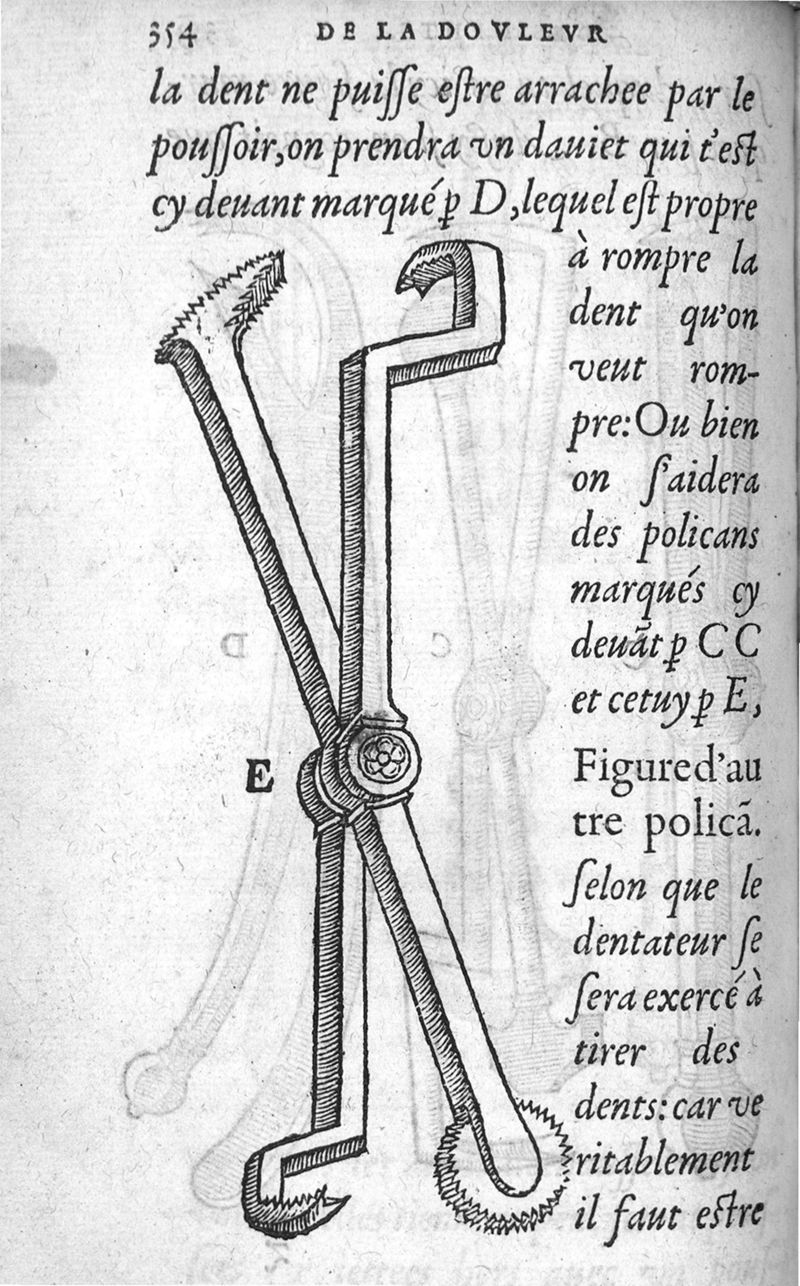 354 DE LA DOVLEVR
la dent ne puiſſe eſtre arrachee par le
pouſſoir, on prendra vn dauiet qui t'eſt
cy deuant marqué ꝑ D, lequel eſt propre
à rompre la
dent qu'on
veut rom-
pre: Ou bien
on ſ'aidera
des policans
marqués cy
deuãt ꝑ C C
et cetuy ꝑ E,
E
Figure d'au
tre policã.
ſelon que le
dentateur ſe
ſera exercé à
tirer des
dents: car ve
ritablement
il faut eſtre